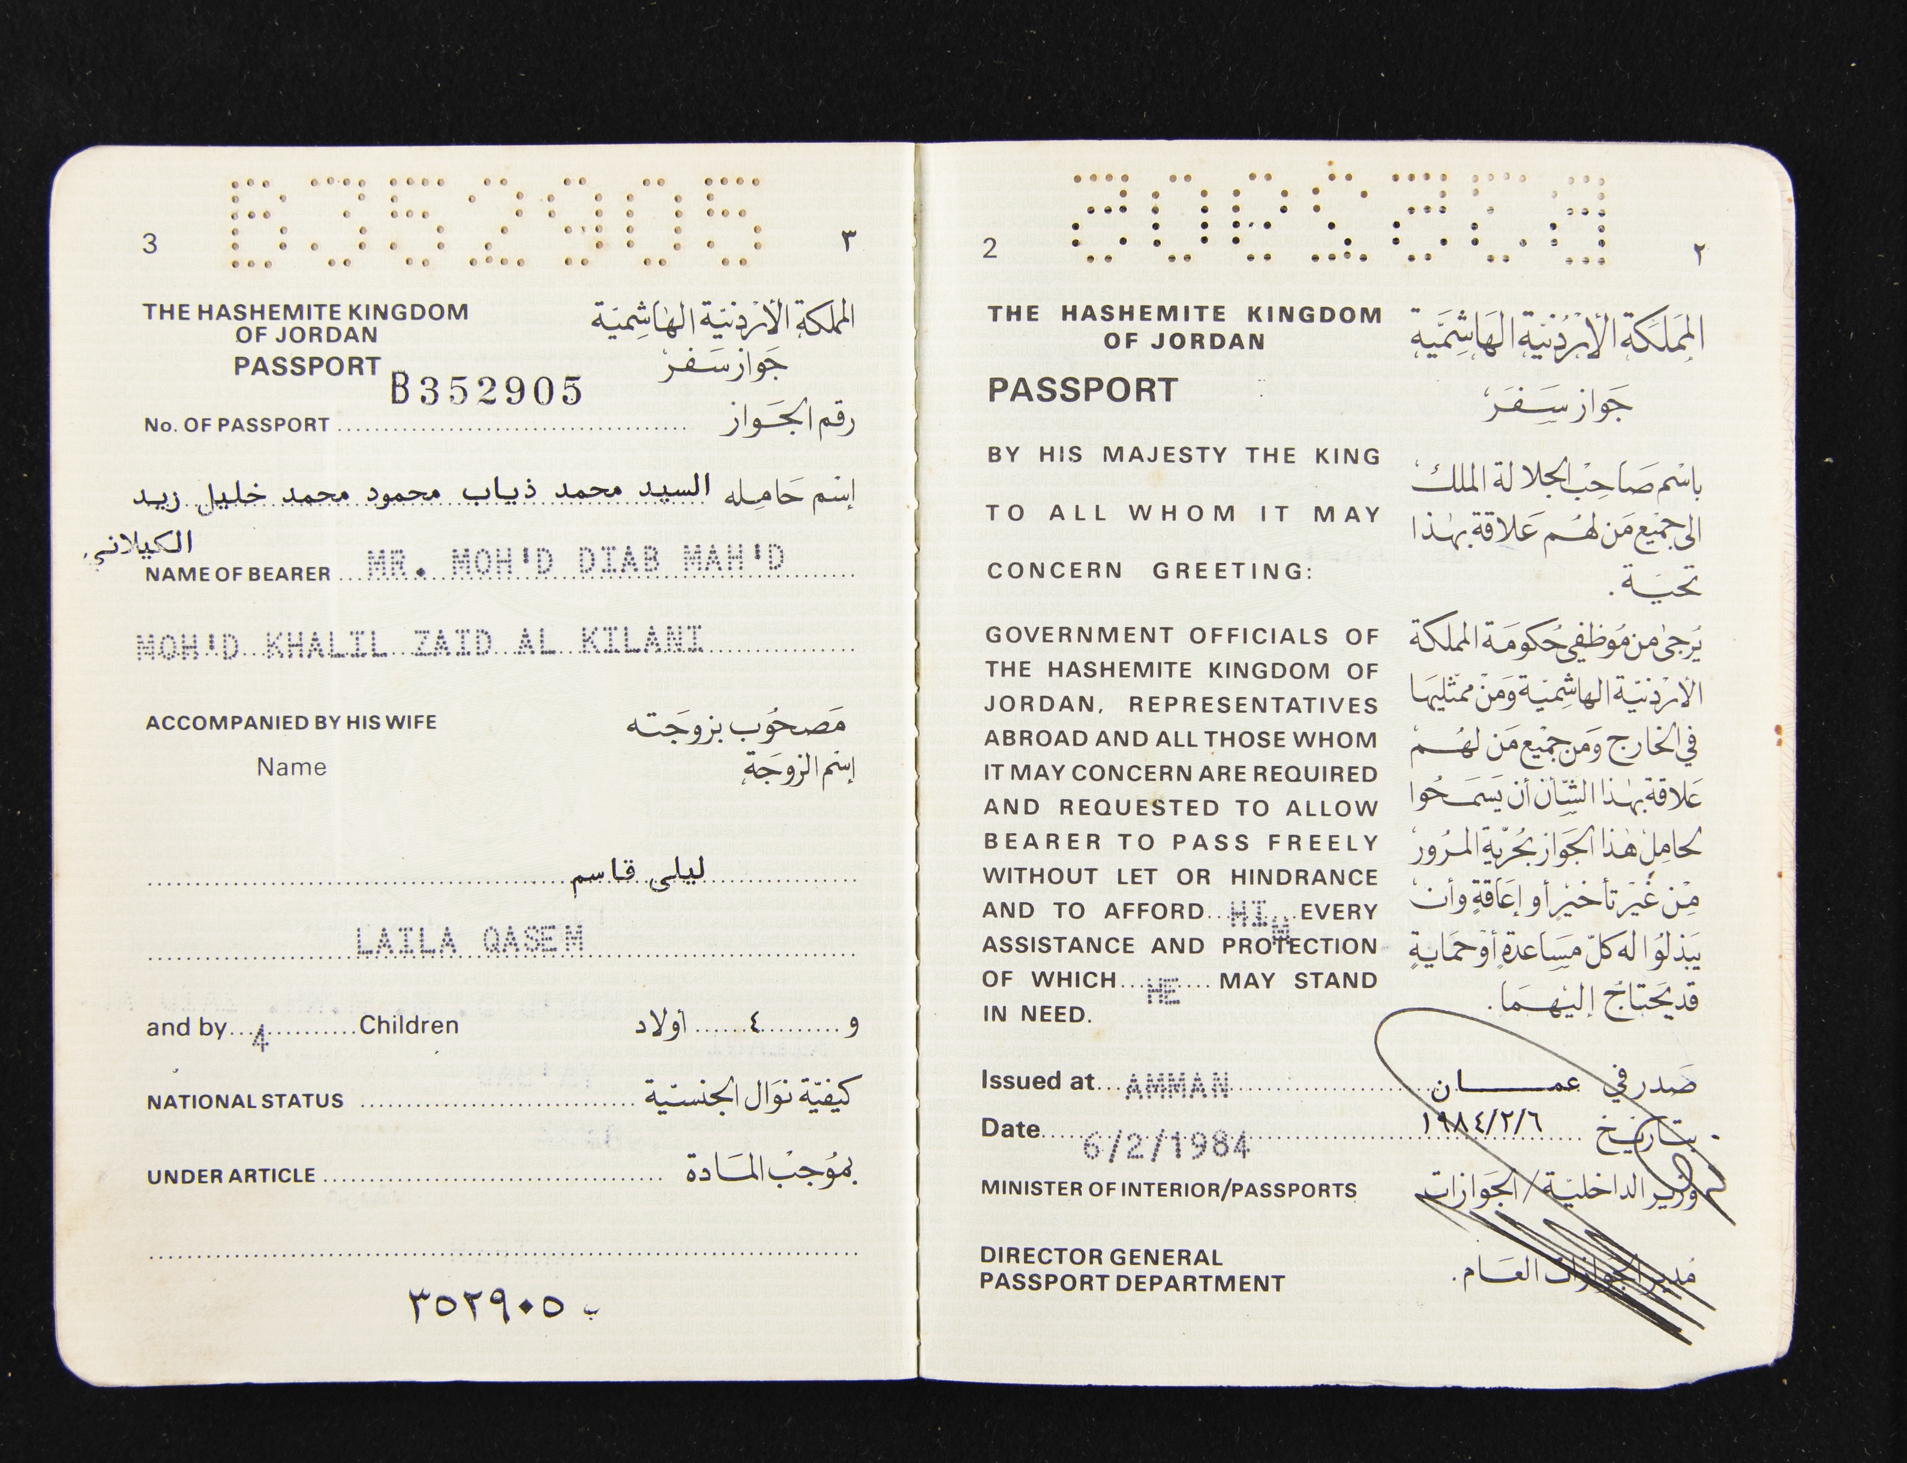 B352905
3
٣
THE HASHEMITE KINGDOM
OF JORDAN
PASSPORT
المملكة الأردنية الهاشمية
جواز سفر
B352905
No. OF PASSPORT
رقم الجواز
إسم حامله السيد محمد ذياب محمود محمد خليل زيد
الكيلاني
NAME OF BEARER MR. MOH'D DIAB MAH'D
MOH'D KHALIL ZAID AL KILANI
ACCOMPANIED BY HIS WIFE
مصحوب بزوجته
Name
إسم الزوجة
ليلى قاسم
LAILA QASEM
and by 4 Children
و ٤ أولاد
NATIONAL STATUS
كيفية نوال الجنسية
UNDER ARTICLE
بموجب المادة
ب ٣٥٢٩٠٥
2
٢
THE HASHEMITE KINGDOM
OF JORDAN
المملكة الأردنية الهاشمية
PASSPORT
جواز سفر
BY HIS MAJESTY THE KING
TO ALL WHOM IT MAY
CONCERN GREETING:
باسم صاحب الجلالة الملك
الى جميع من لهم علاقة بهذا
تحية .
GOVERNMENT OFFICIALS OF
THE HASHEMITE KINGDOM OF
JORDAN, REPRESENTATIVES
ABROAD AND ALL THOSE WHOM
IT MAY CONCERN ARE REQUIRED
AND REQUESTED TO ALLOW
BEARER TO PASS FREELY
WITHOUT LET OR HINDRANCE
AND TO AFFORD HIM EVERY
ASSISTANCE AND PROTECTION
OF WHICH HE MAY STAND
IN NEED.
يرجى من موظفي حكومة المملكة
الأردنية الهاشمية ومن ممثليها
في الخارج ومن جميع من لهم
علاقة بهذا الشأن أن يسمحوا
لحامل هذا الجواز بحرية المرور
من غير تأخير أو إعاقة وأن
يبذلوا له كل مساعدة أو حماية
قد يحتاج إليهما .
Issued at AMMAN
صدر في عمان
Date 6/2/1984
بتاريخ ١٩٨٤/٢/٦
MINISTER OF INTERIOR/PASSPORTS
وزير الداخلية / الجوازات
DIRECTOR GENERAL
PASSPORT DEPARTMENT
مدير الجوازات العام .